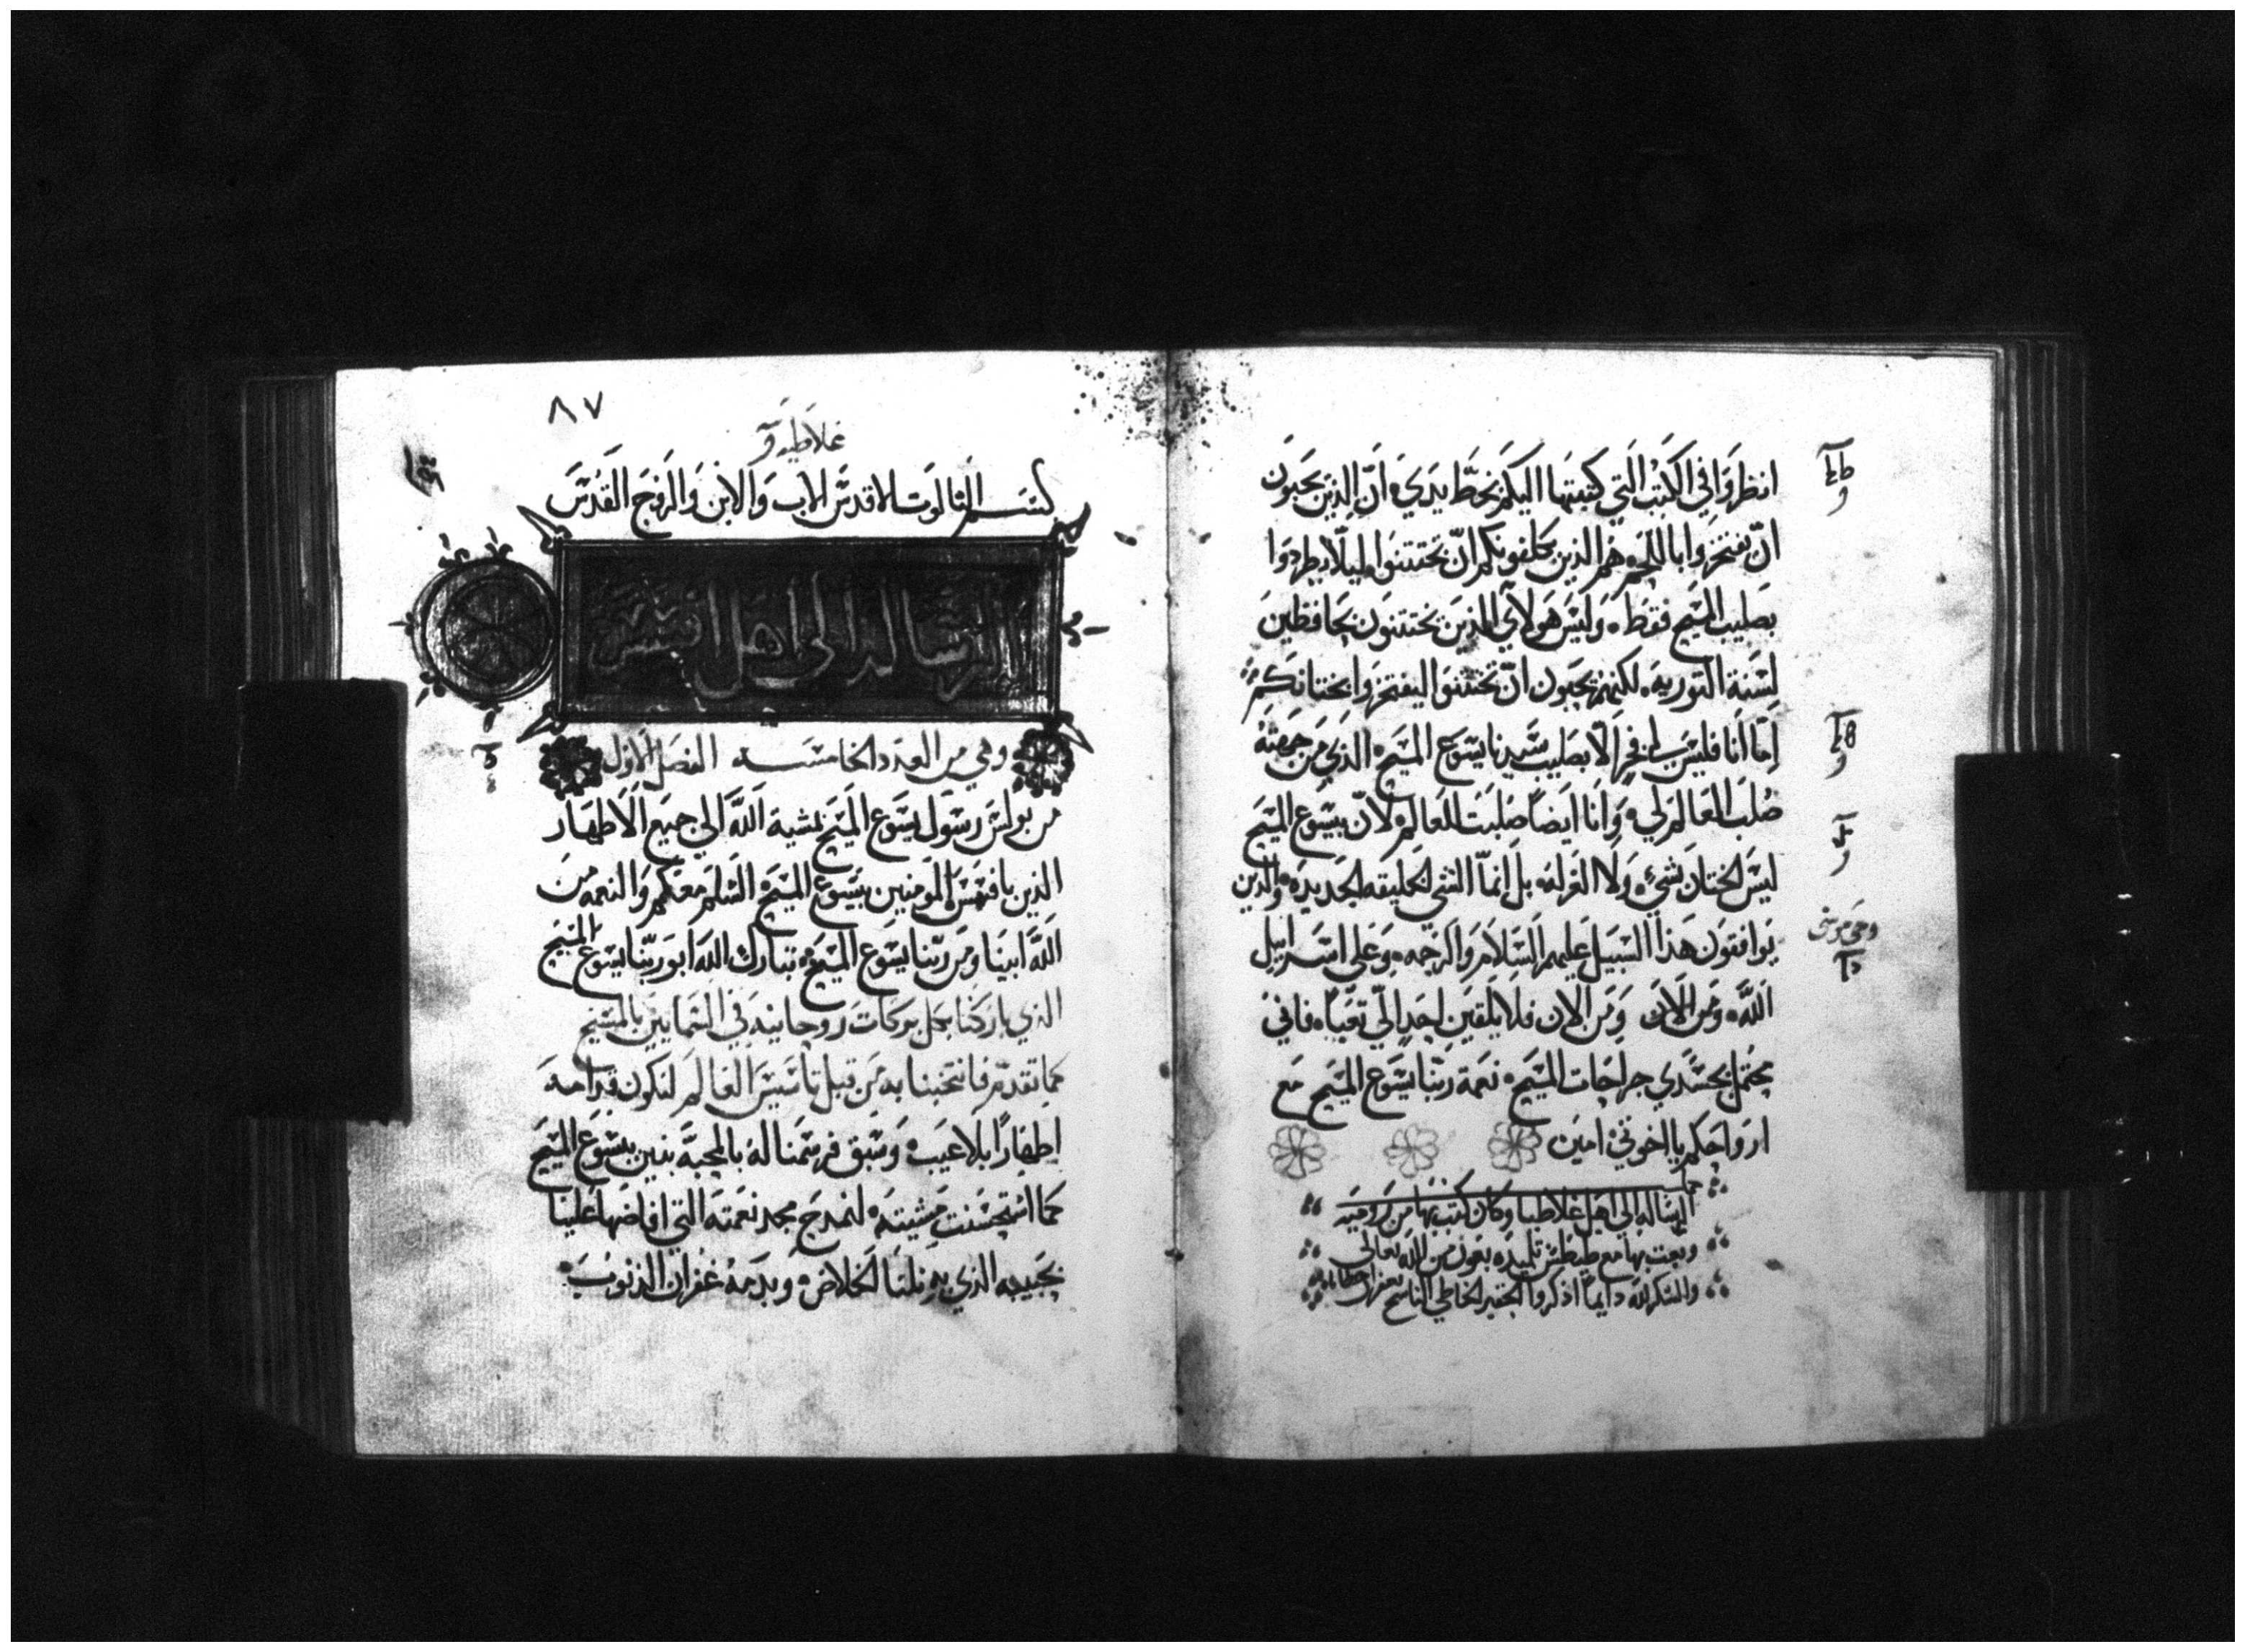 انظروا في الكتب التي كتبتها اليكم بخط يدي ان الذين يحبون
ان يفتخروا باللحم هم الذين يكلفونكم ان تختتنوا ليلا يطردوا
بصليب المسيح فقط وليس هولاي الذين يختتنون بحافظين
لسنة التوريه لكنهم يحبون ان تختتنوا ليفتخروا بختانكم
اما انا فليس لي فخر الا بصليب سيدنا يسوع المسيح الذي من جهته
صلب العالم لي وانا ايضا صلبت للعالم لان بيسوع المسيح
ليس الختان بشي ولا الغرله بل انما الشي الخليقه الجديده والذين
يوافقون هذا السبيل عليهم السلام والرحمه وعلي اسراييل
الله ومن الان ومن الان فلا يلقين احد الي تعبا فاني
محتمل بجسدي جراحات المسيح نعمة ربنا يسوع المسيح مع
ارواحكم يا اخوتي امين
الرساله الي اهل غلاطيا وكان كتب بها من روميه
وبعث بها مع طيطس تلميذه بعون من الله تعالي
والشكر لله دايما اذكروا الحقير الخاطي الناسخ
٨٧
غلاطيه
بسم الثالوت الاقدس الاب والابن والروح القدس
الرساله الى اهل افسس
وهي من العدد الخامسه الفصل الاول
من بولس رسول يسوع المسيح بمشية الله الي جميع الاطهار
الذين بافسس المومنين بيسوع المسيح السلم معكم والنعمه من
الله ابينا ومن ربنا يسوع المسيح تبارك الله ابو ربنا يسوع المسيح
الذي باركنا بكل بركات روحانيه في السمايين بالمسيح
كما تقدم فانتخبنا به من قبل تاسيس العالم لنكون قدامه
اطهارا بلا عيب وسبق فرسمنا له بالمحبة بنين بيسوع المسيح
كما استحسنت مشيته لنمدح مجد نعمته التي افاضها علينا
بحبيبه الذي به نلنا الخلاص وبدمه غفران الذنوب